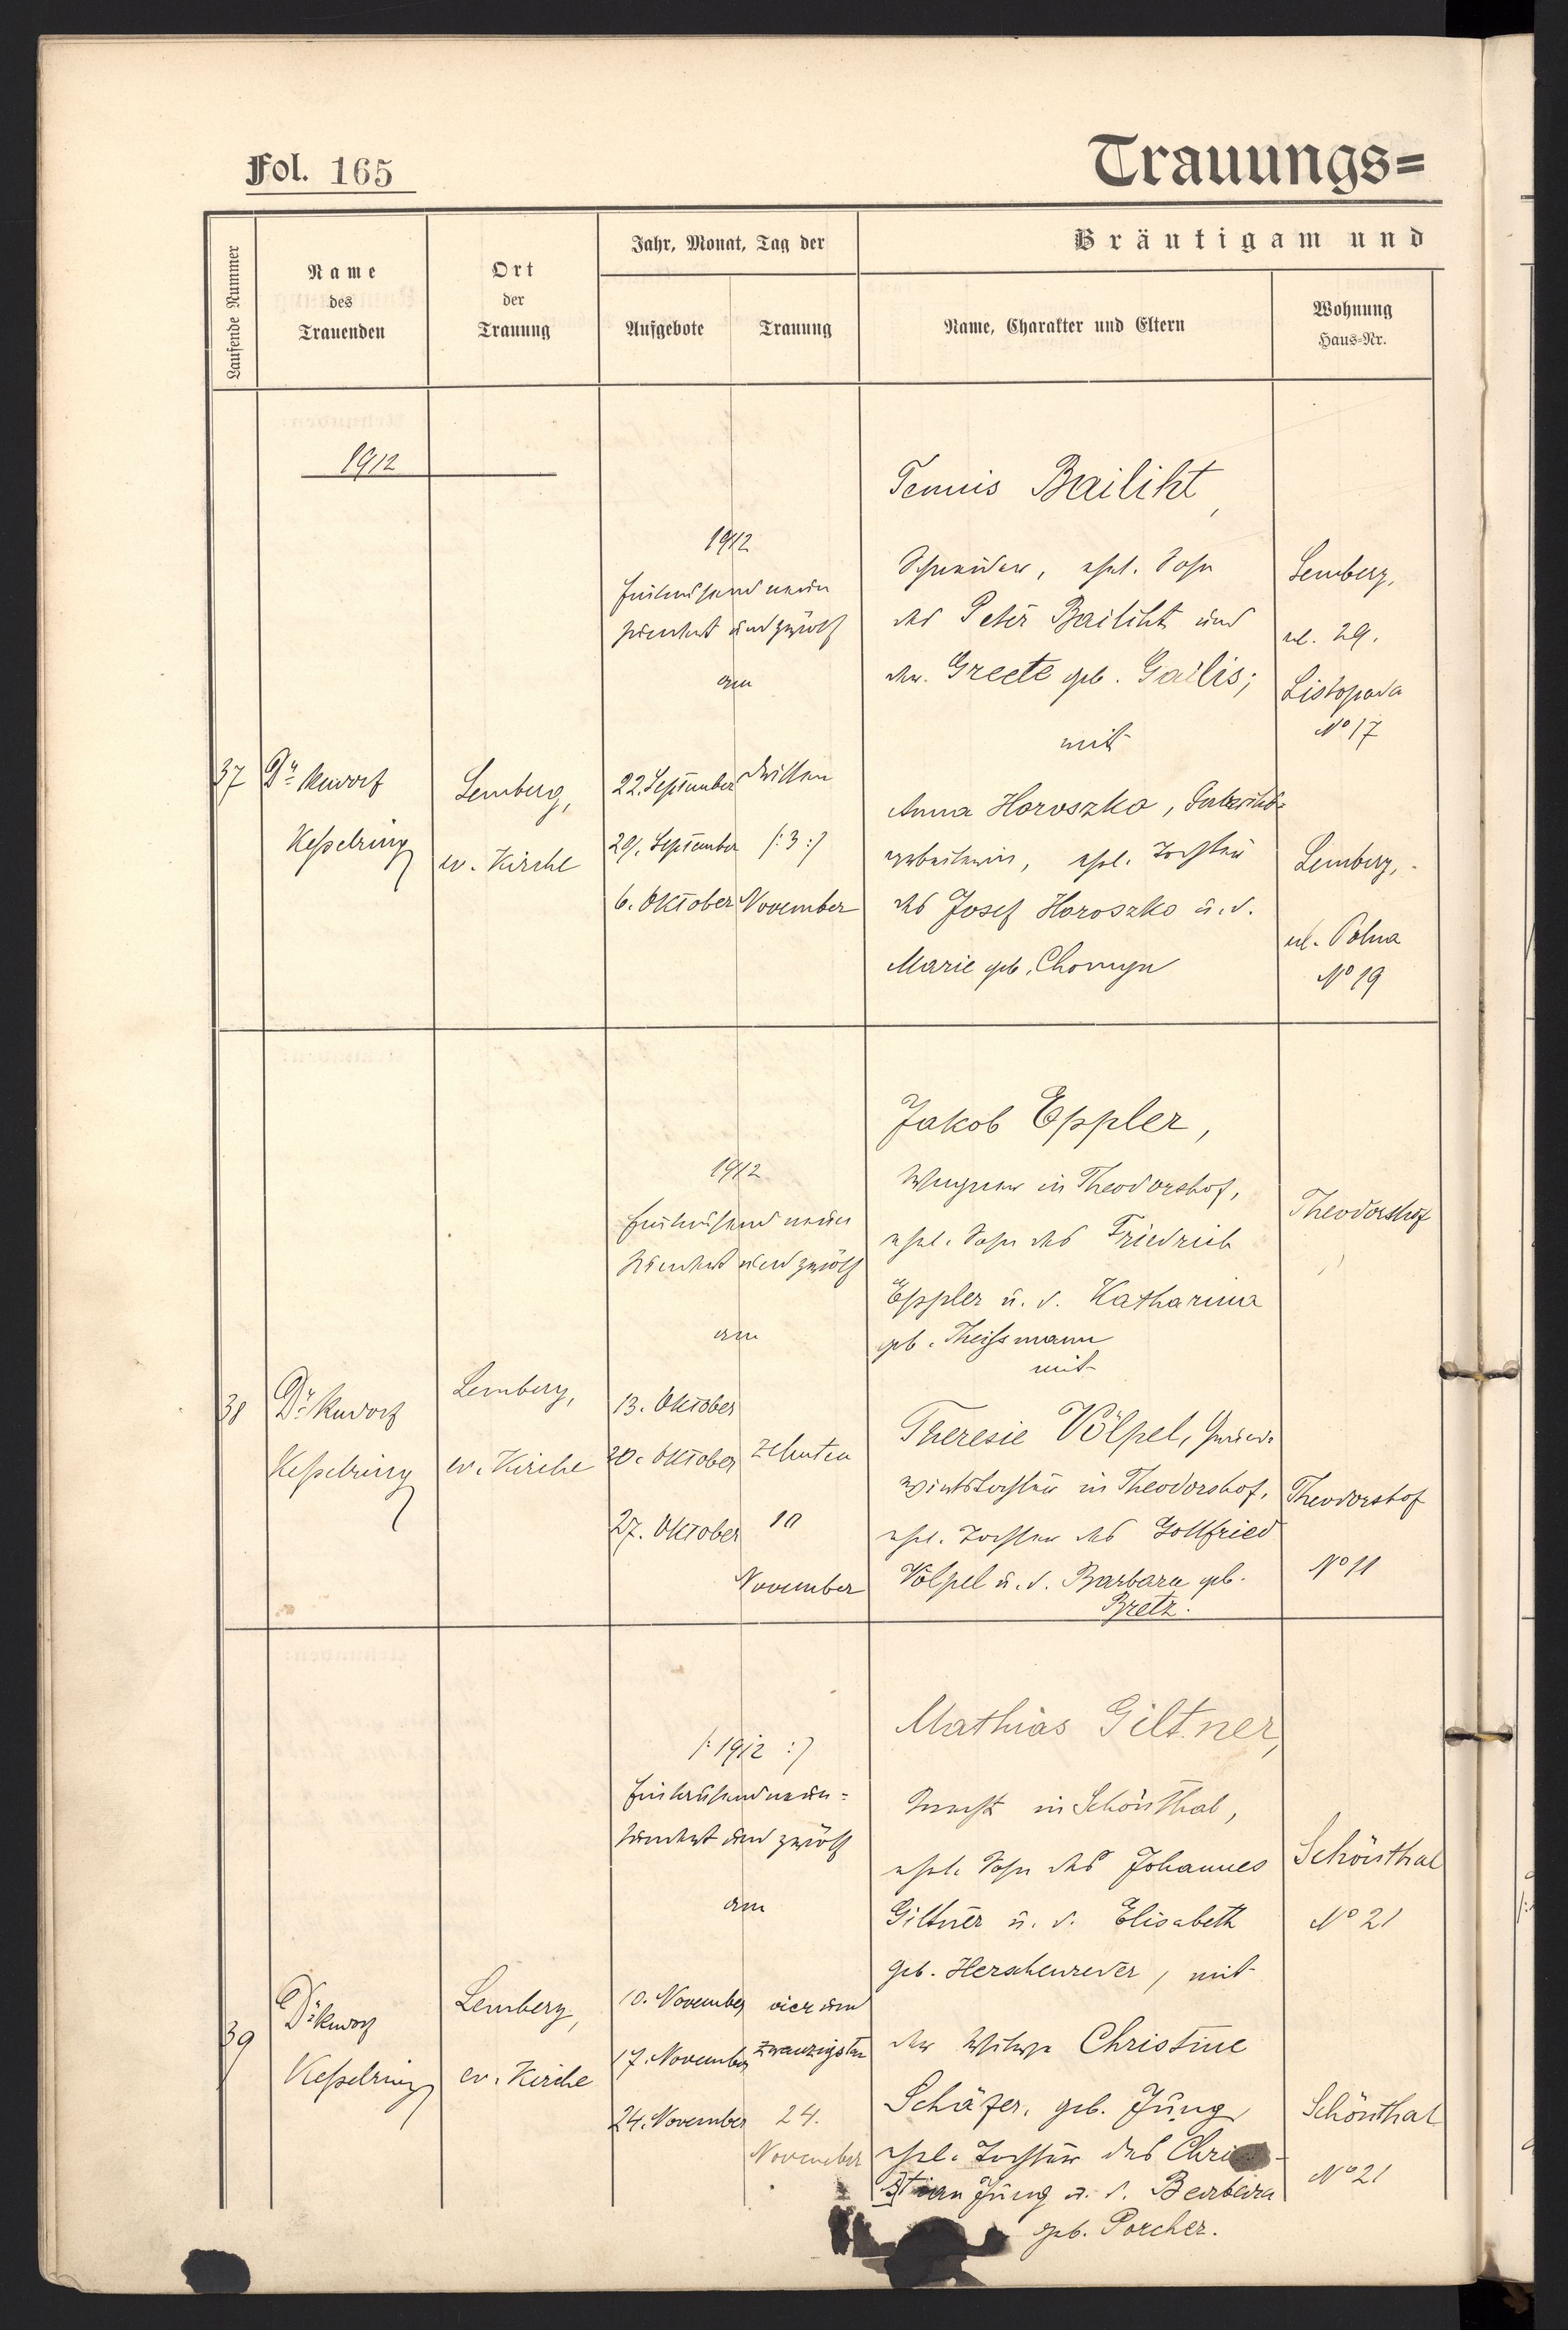 Fol. 165
Trauungs=
Laufende Nummer
Name
des
Trauenden
Ort
der
Trauung
Jahr, Monat, Tag der
Aufgebote
Trauung
Bräutigam und
Name, Charakter und Eltern
Wohnung
Haus-Nr.
1912
37
Dr Rudolf
Kesselring
Lemberg,
ev. Kirche
1912
Eintausend neun
hundert und zwölf
am
22. September
29. September
6. Oktober
dritten
/: 3 :/
November
Bailiht,
Schneider, ehel. Sohn
des Peter Bailiht und
der Greete geb. Gailis;
mit
Anna Horoszko, Fabriks-
arbeiterin, ehel. Tochter
des Josef Horoszko u. d.
Marie geb. Chomyn
Lemberg,
ul. 29.
Listopada
No 17
Lemberg,
ul. Polna
No 19
38
Dr Rudolf
Kesselring
Lemberg,
ev. Kirche
1912
Eintausend neun
hundert und zwölf
am
13. Oktober
20. Oktober
27. Oktober
zehnten
10
November
Jakob Eppler,
Wagner in Theodorshof,
ehel. Sohn des Friedrich
Eppler u. d. Katharina
geb. Theissmann
mit
Theresie Völpel, Grund-
wirtstochter in Theodorshof,
ehel. Tochter des Gottfried
Völpel u. d. Barbara geb.
Bretz.
Theodorshof
Theodorshof
No 11
39
Dr Rudolf
Kesselring
Lemberg,
ev. Kirche
/: 1912 :/
Eintausend neun-
hundert und zwölf
am
10. November
17. November
24. November
vier und
zwanzigsten
24.
November
Mathias Giltner,
Knecht in Schönthal,
ehel. Sohn des Johannes
Giltner u. d. Elisabeth
geb. Herschenreder, mit
der Witwe Christine
Schäfer, geb. Jung,
ehel. Tochter des Chri-
stian Jung u. d. Barbara
geb. Porcher.
Schönthal
No 21
Schönthal
No 21